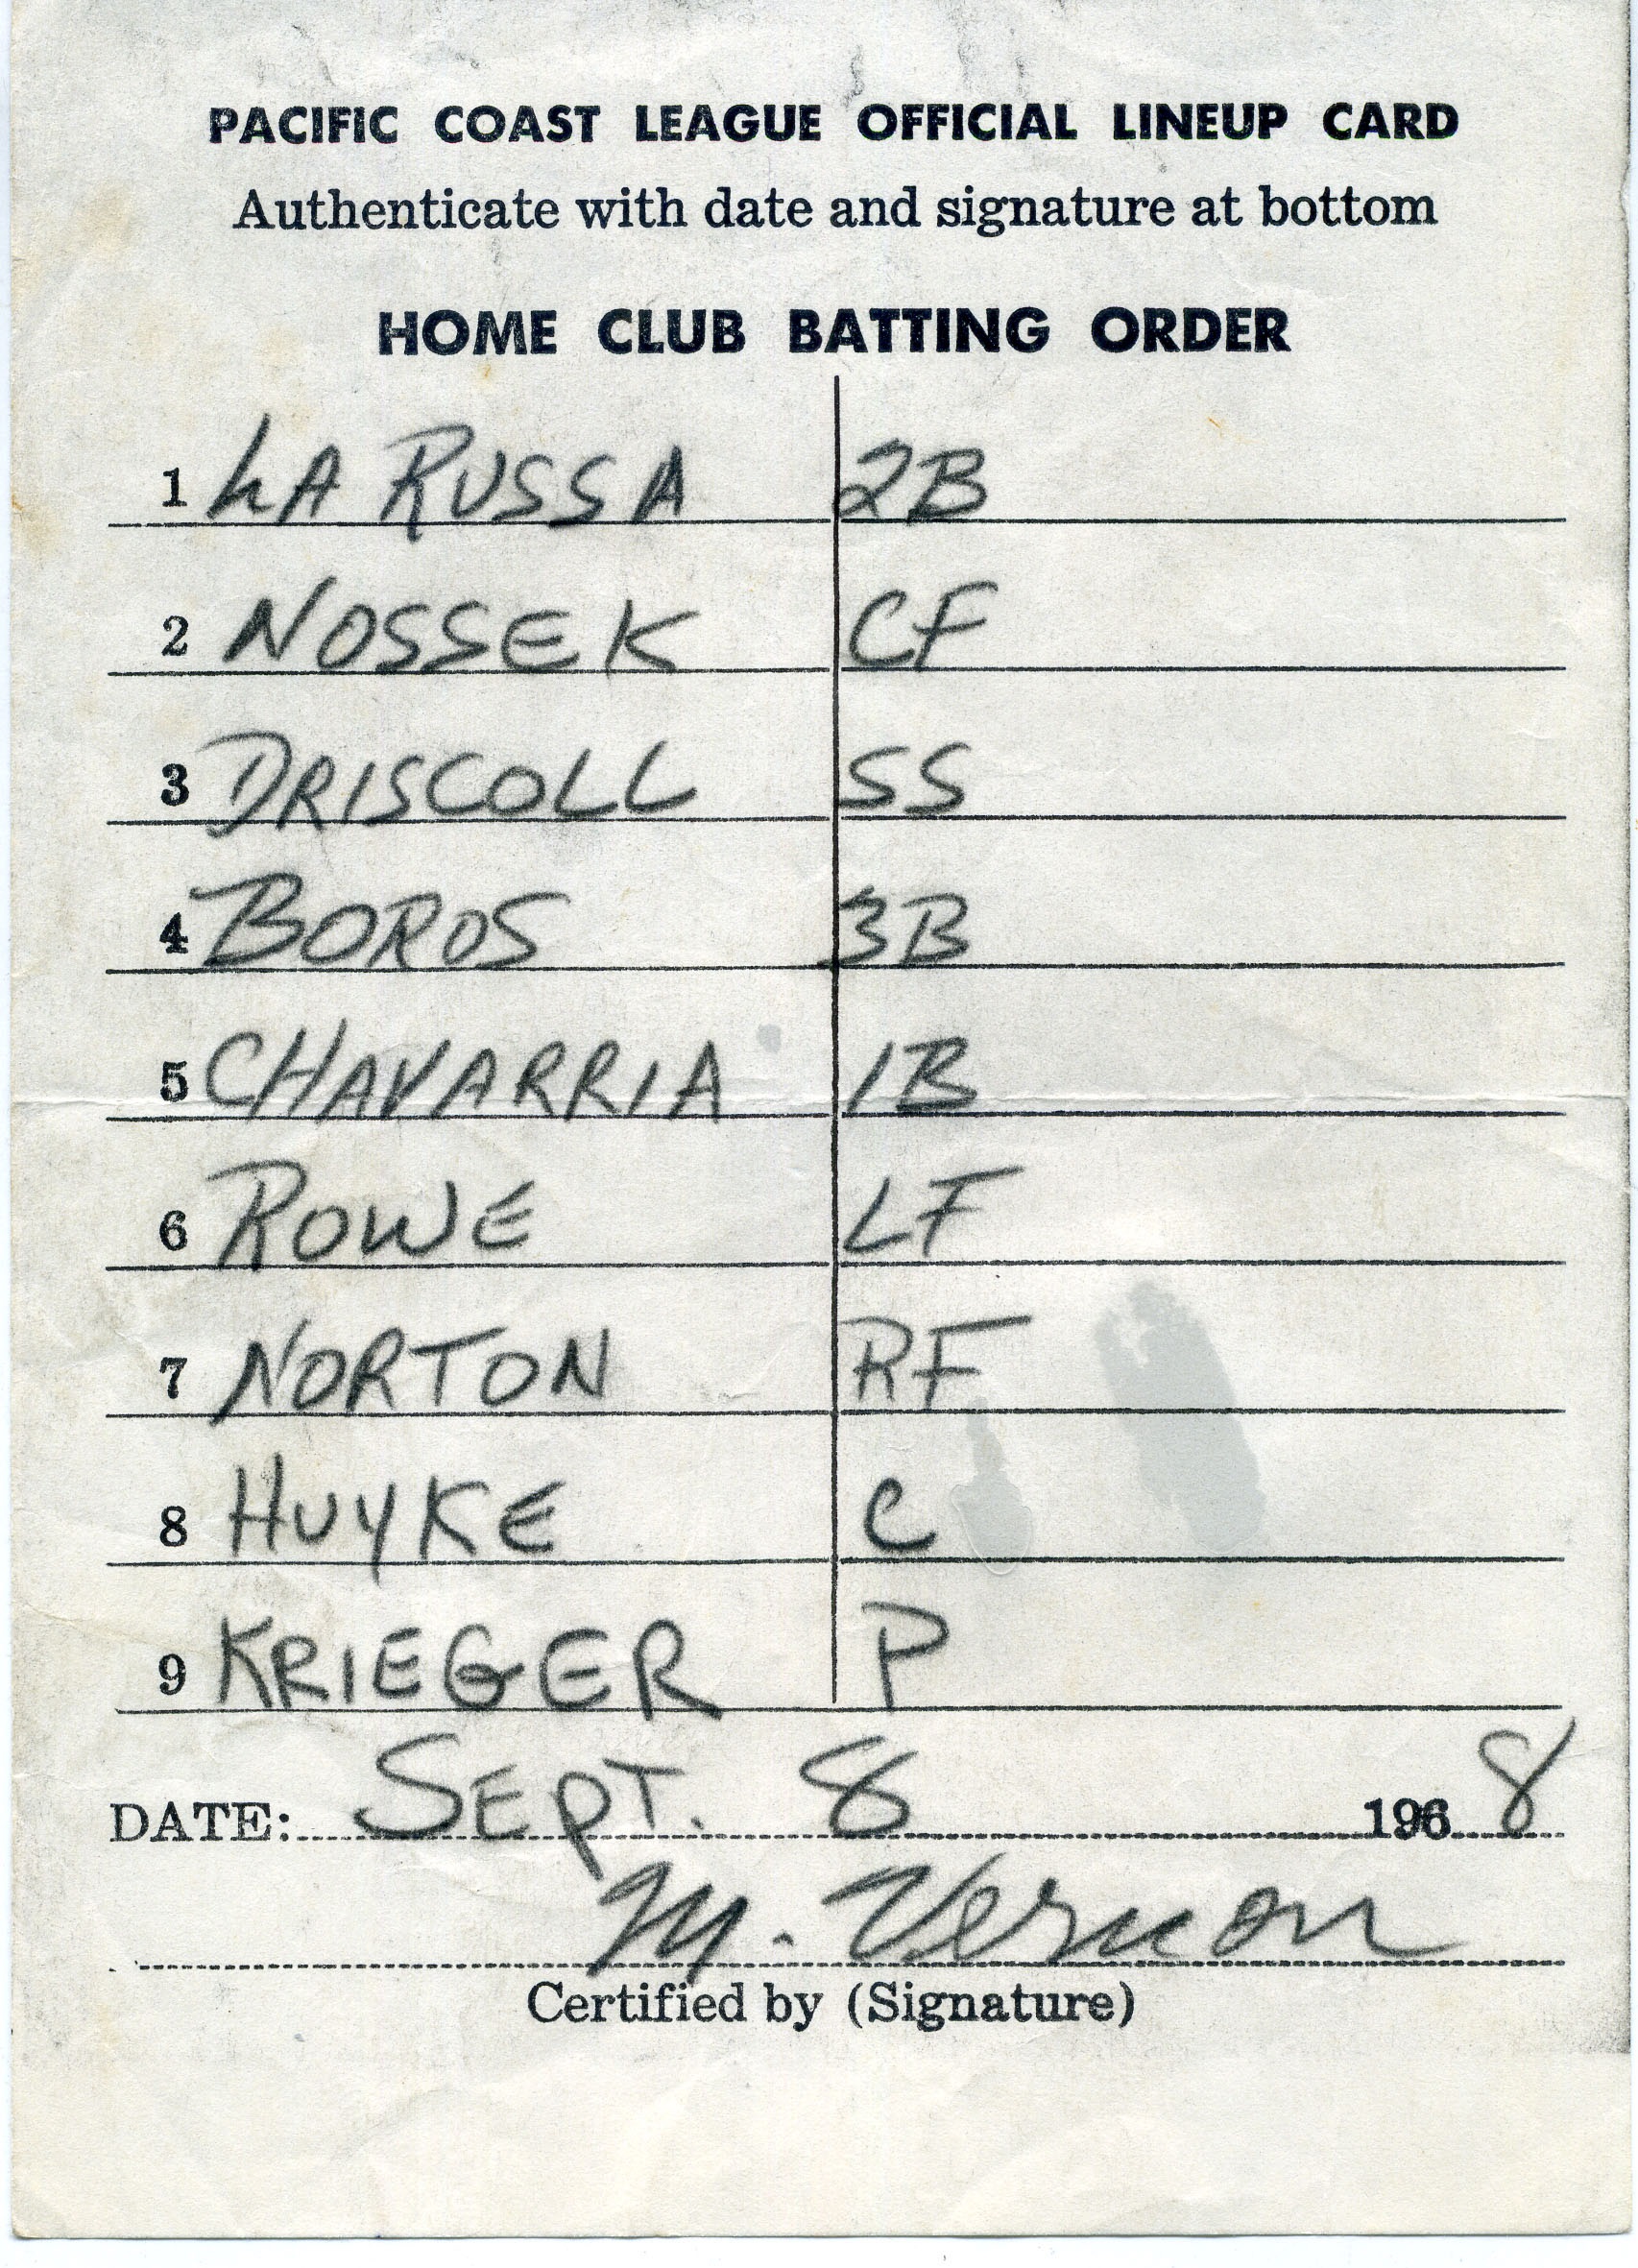 PACIFIC COAST LEAGUE OFFICIAL LINEUP CARD
Authenticate with date and signature at bottom
HOME CLUB BATTING ORDER
1 LA RUSSA 2B
2 NOSSEK CF
3 DRISCOLL SS
4 BOROS 3B
5 CHAVARRIA 1B
6 ROWE LF
7 NORTON RF
8 HUYKE C
9 KRIEGER P
DATE: SEPT. 8 1968
M. Vernon
Certified by (Signature)